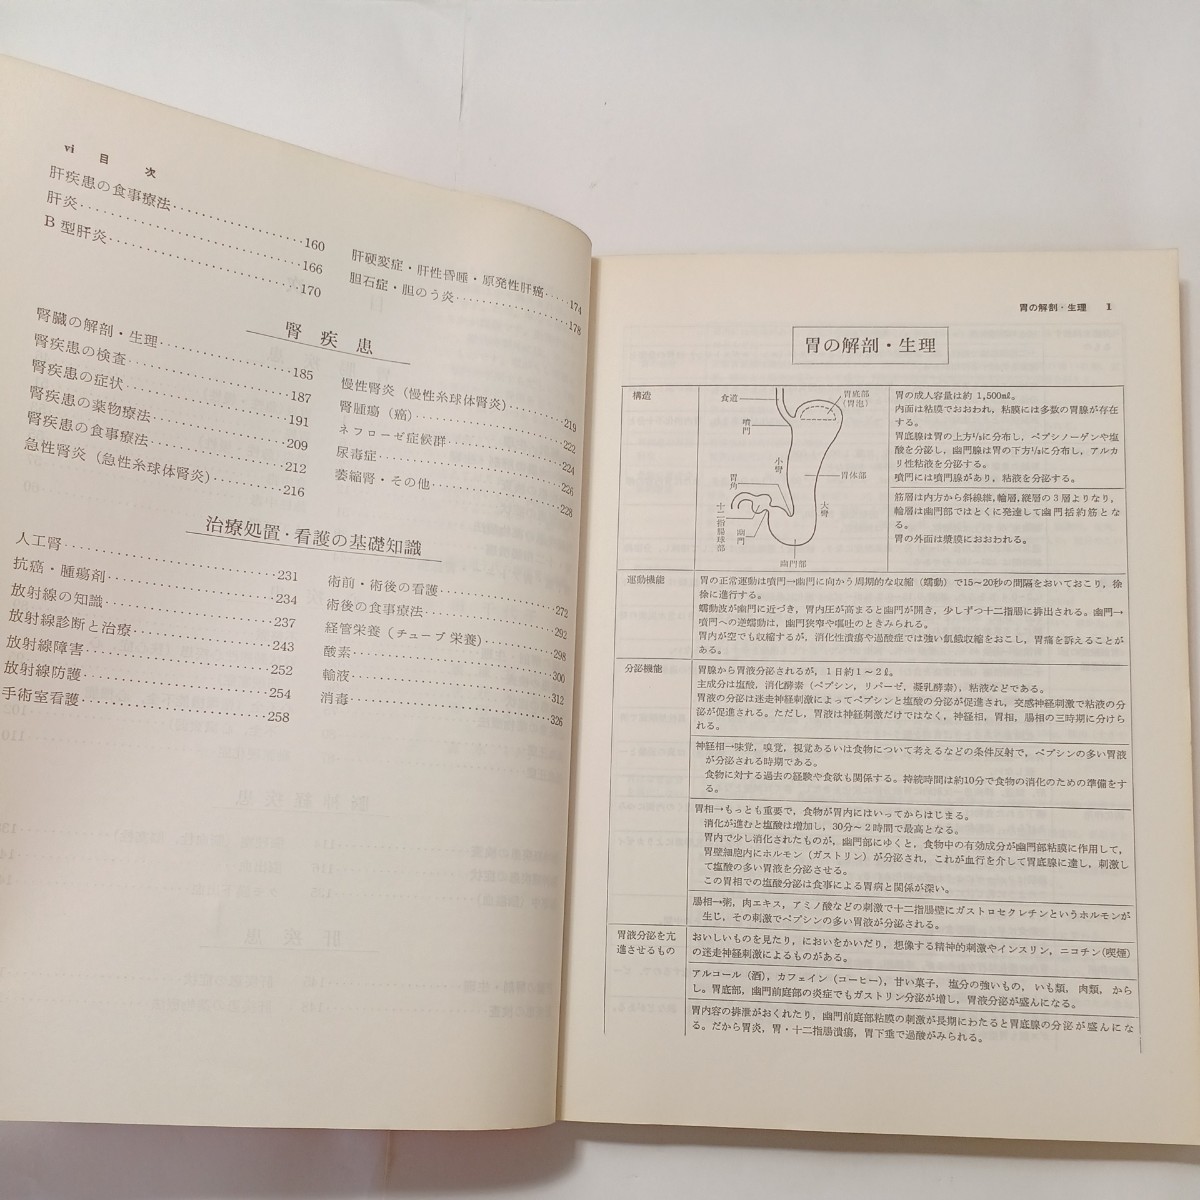 vi 目 次
肝疾患の食事療法……160
肝炎……166
B型肝炎……170
肝硬変症・肝性昏睡・原発性肝癌……174
胆石症・胆のう炎……178
腎疾患
腎臓の解剖・生理……185
腎疾患の検査……187
腎疾患の症状……191
腎疾患の薬物療法……209
腎疾患の食事療法……212
急性腎炎（急性糸球体腎炎）……216
慢性腎炎（慢性糸球体腎炎）……219
腎腫瘍（癌）……222
ネフローゼ症候群……224
尿毒症……226
萎縮腎・その他……228
治療処置・看護の基礎知識
人工腎……231
抗癌・腫瘍剤……234
放射線の知識……237
放射線診断と治療……243
放射線障害……252
放射線防護……254
手術室看護……258
術前・術後の看護……272
術後の食事療法……292
経管栄養（チューブ栄養）……298
酸素……300
輸液……312
消毒……326
胃の解剖・生理 1
胃の解剖・生理
構造
食道
胃底部
（胃泡）
噴門
小彎
胃角
胃体部
大彎
十二指腸球部
幽門
幽門部
胃の成人容量は約1,500ml。
内面は粘膜でおおわれ，粘膜には多数の胃腺が存在
する。
胃底腺は胃の上方²/₃に分布し，ペプシノーゲンや塩
酸を分泌し，幽門腺は胃の下方¹/₃に分布し，アルカ
リ性粘液を分泌する。
噴門には噴門腺があり，粘液を分泌する。
筋層は内方から斜線維，輪層，縦層の3層よりなり，
輪層は幽門部ではとくに発達して幽門括約筋とな
る。
胃の外面は漿膜におおわれる。
運動機能
胃の正常運動は噴門→幽門に向かう周期的な収縮（蠕動）で15～20秒の間隔をおいておこり，徐
徐に進行する。
蠕動波が幽門に近づき，胃内圧が高まると幽門が開き，少しずつ十二指腸に排出される。幽門→
噴門への逆蠕動は，幽門狭窄や嘔吐のときみられる。
胃内が空でも収縮するが，消化性潰瘍や過酸症では強い飢餓収縮をおこし，胃痛を訴えることが
ある。
分泌機能
胃腺から胃液分泌されるが，1日約1～2l。
主成分は塩酸，消化酵素（ペプシン，リパーゼ，凝乳酵素），粘液などである。
胃液の分泌は迷走神経刺激によってペプシンと塩酸の分泌が促進され，交感神経刺激で粘液の分
泌が促進される。ただし，胃液は神経刺激だけではなく，神経相，胃相，腸相の三時期に分けら
れる。
神経相→味覚，嗅覚，視覚あるいは食物について考えるなどの条件反射で，ペプシンの多い胃液
が分泌される時期である。
食物に対する過去の経験や食欲も関係する。持続時間は約10分で食物の消化のための準備をす
る。
胃相→もっとも重要で，食物が胃内にはいってからはじまる。
消化が進むと塩酸は増加し，30分～2時間で最高となる。
胃内で少し消化されたものが，幽門部にゆくと，食物中の有効成分が幽門部粘膜に作用して，
胃壁細胞内にホルモン（ガストリン）が分泌され，これが血行を介して胃底腺に達し，刺激し
て塩酸の多い胃液を分泌させる。
この胃相での塩酸分泌は食事による胃病と関係が深い。
腸相→粥，肉エキス，アミノ酸などの刺激で十二指腸壁にガストロセクレチンというホルモンが
生じ，その刺激でペプシンの多い胃液が分泌される。
胃液分泌を亢
進させるもの
おいしいものを見たり，においをかいだり，想像する精神的刺激やインスリン，ニコチン（喫煙）
の迷走神経刺激によるものがある。
アルコール（酒），カフェイン（コーヒー），甘い菓子，塩分の強いもの，いも類，肉類，から
し。胃底部，幽門前庭部の炎症でもガストリン分泌が増し，胃液分泌が盛んになる。
胃内容の排泄がおくれたり，幽門前庭部粘膜の刺激が長期にわたると胃底腺の分泌が盛んにな
る。だから胃炎，胃・十二指腸潰瘍，胃下垂で過酸がみられる。